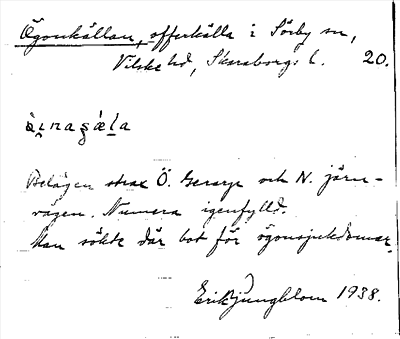 Ögonkällan, offerkälla i Sörby sn,
Vilske hd, Skaraborgs l. 20.
Belägen strax Ö. Gerorp och N. järn-
vägen. Numera igenfylld.
Man sökte där bot för ögonsjukdomar.
Erik Ljungblom 1938.